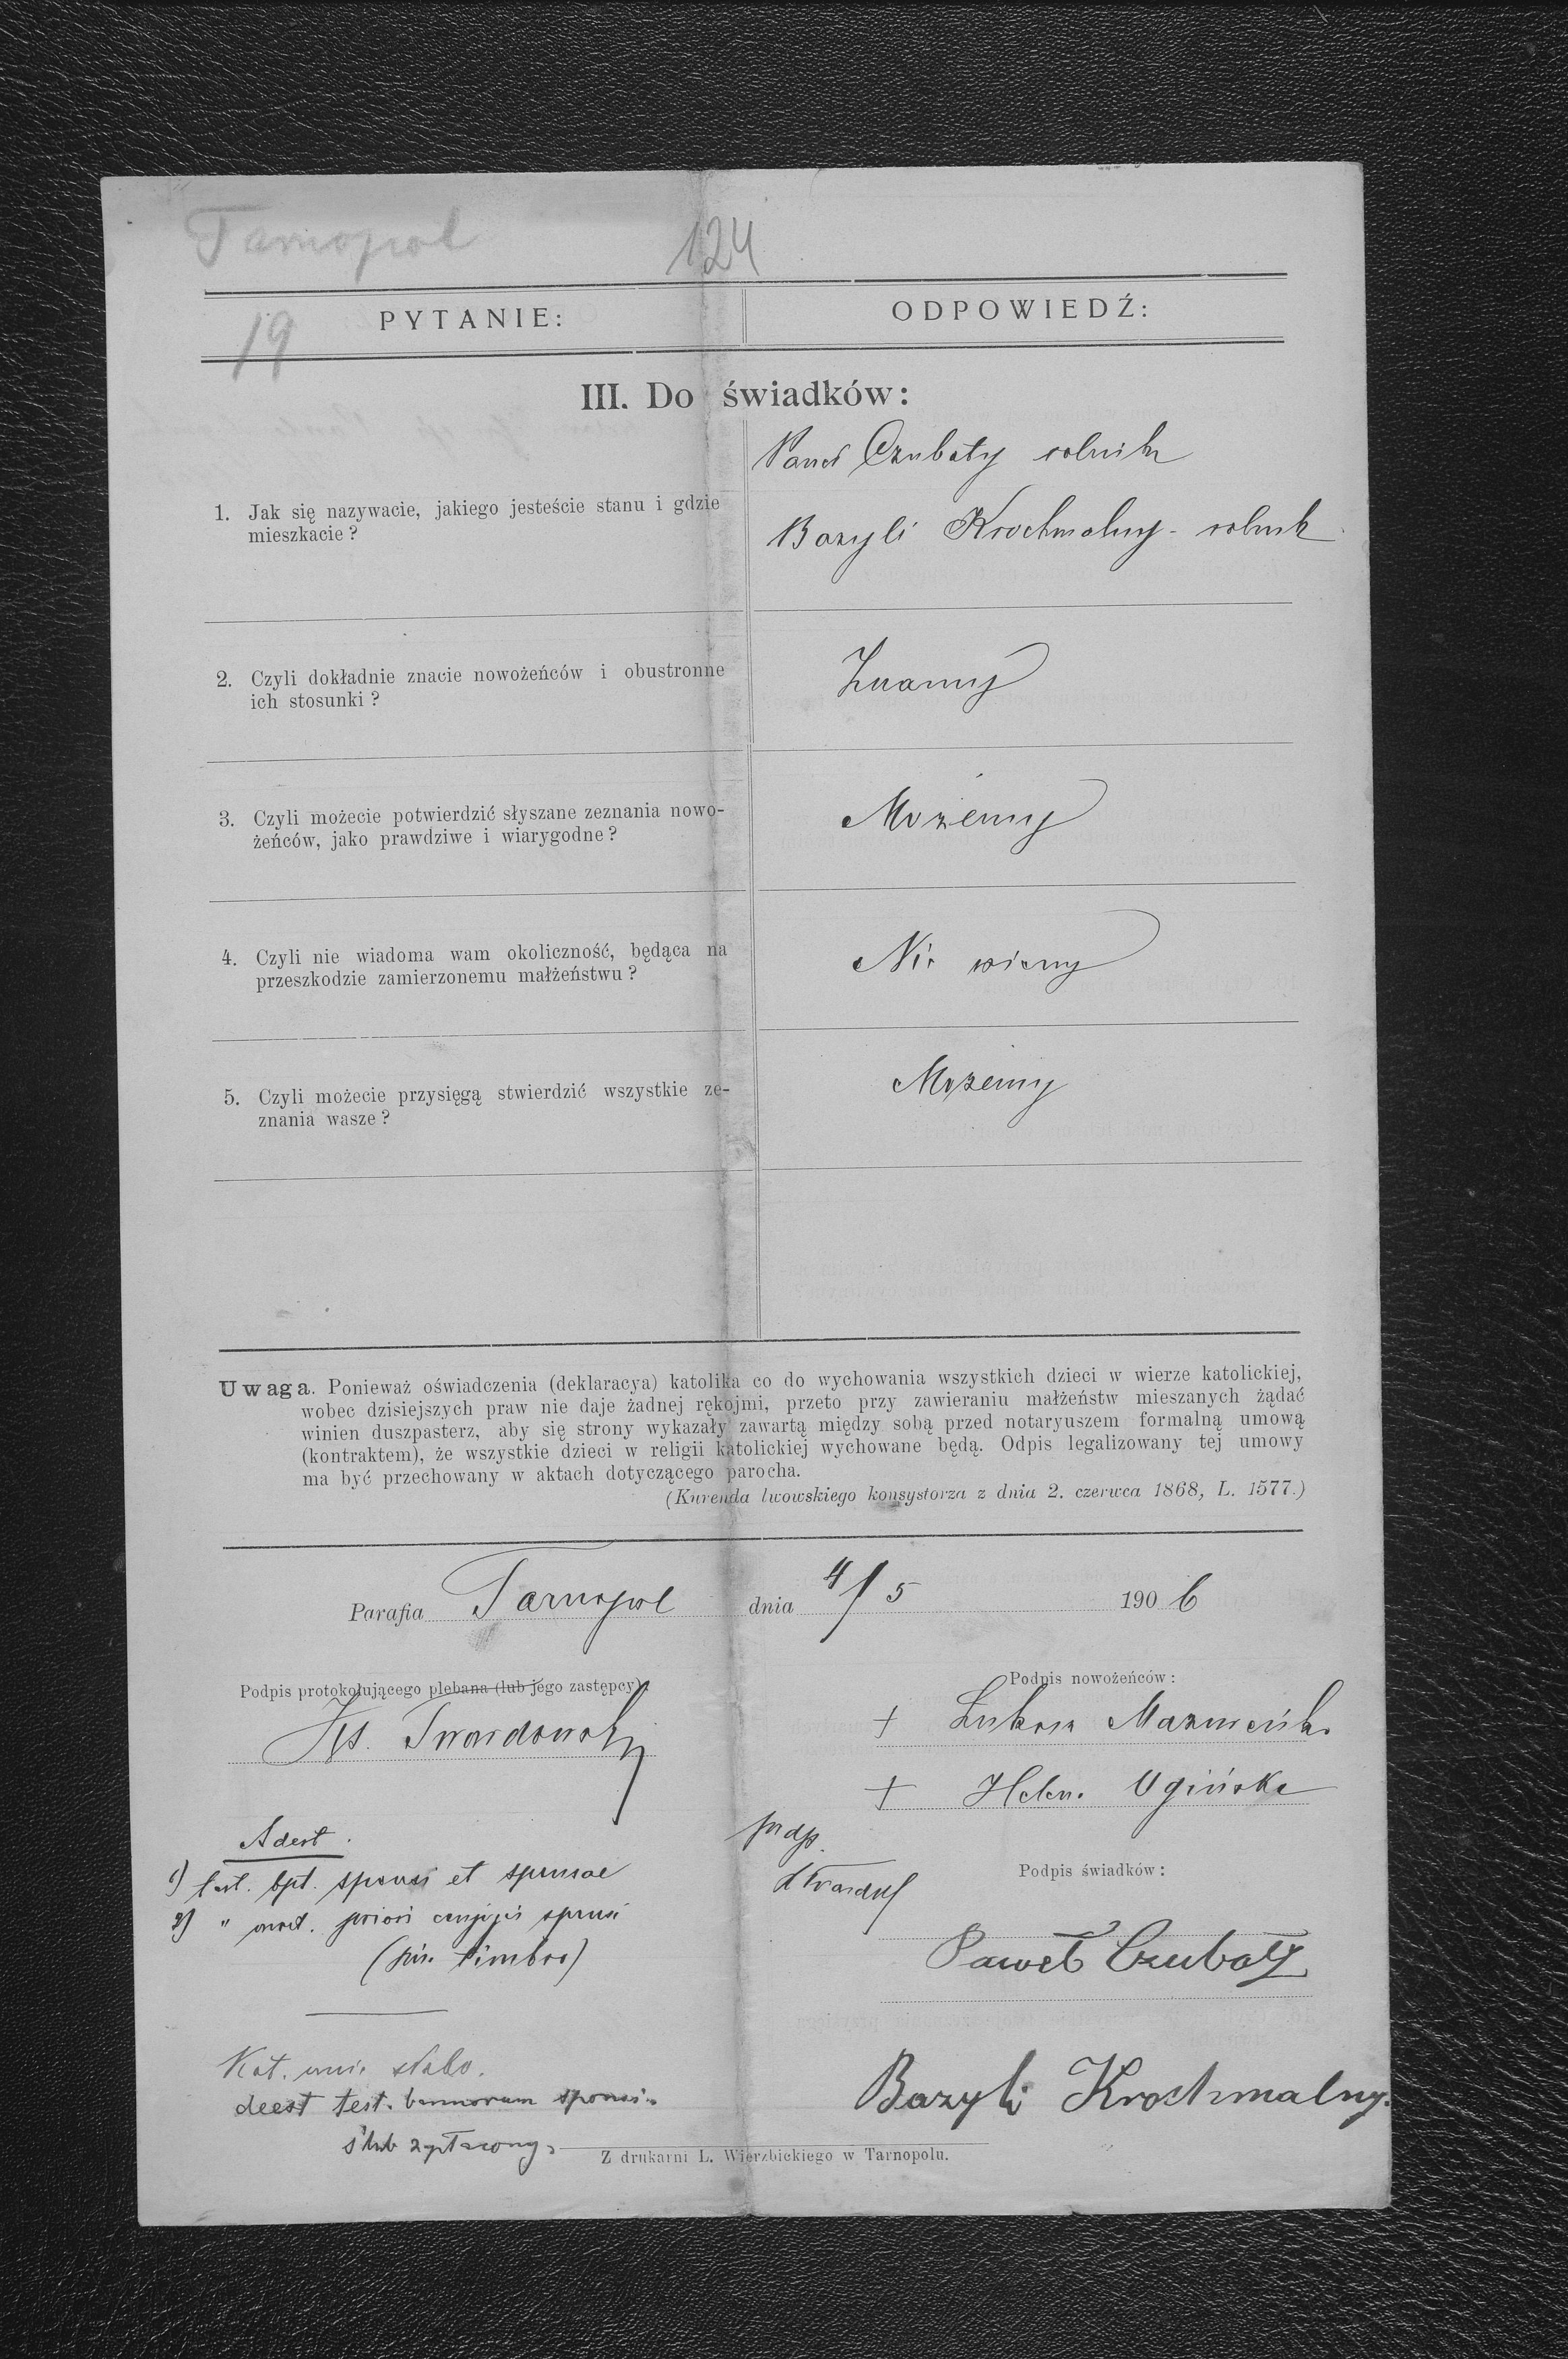 Tarnopol
124
19
PYTANIE:
ODPOWIEDŹ:
III. Do świadków:
1. Jak się nazywacie, jakiego jesteście stanu i gdzie
mieszkacie?
Paweł Czubaty rolnik
Bazyli Krochmalny - rolnik
2. Czyli dokładnie znacie nowożeńców i obustronne
ich stosunki?
Znamy
3. Czyli możecie potwierdzić słyszane zeznania nowo-
żeńców, jako prawdziwe i wiarygodne?
Możemy
4. Czyli nie wiadoma wam okoliczność, będąca na
przeszkodzie zamierzonemu małżeństwu?
Nie wiemy
5. Czyli możecie przysięgą stwierdzić wszystkie ze-
znania wasze?
Możemy
Uwaga. Ponieważ oświadczenia (deklaracya) katolika co do wychowania wszystkich dzieci w wierze katolickiej,
wobec dzisiejszych praw nie daje żadnej rękojmi, przeto przy zawieraniu małżeństw mieszanych żądać
winien duszpasterz, aby się strony wykazały zawartą między sobą przed notaryuszem formalną umową
(kontraktem), że wszystkie dzieci w religii katolickiej wychowane będą. Odpis legalizowany tej umowy
ma być przechowany w aktach dotyczącego parocha.
(Kurenda lwowskiego konsystorza z dnia 2. czerwca 1868, L. 1577.)
Parafia Tarnopol dnia 4/5 1906
Podpis protokołującego plebana (lub jego zastępcy)
Ks. Twardowski
Podpis nowożeńców:
+ Łukasz
+ Helena Ugińska
podp.
Adest.
1) test. bpt. sponsi et sponsae
2) " mort. prioris conjugis sponsi
Podpis świadków:
Paweł Czubaty
Bazyli Krochmalny.
deest test. bannorum sponsi.
ślub
Z drukarni L. Wierzbickiego w Tarnopolu.